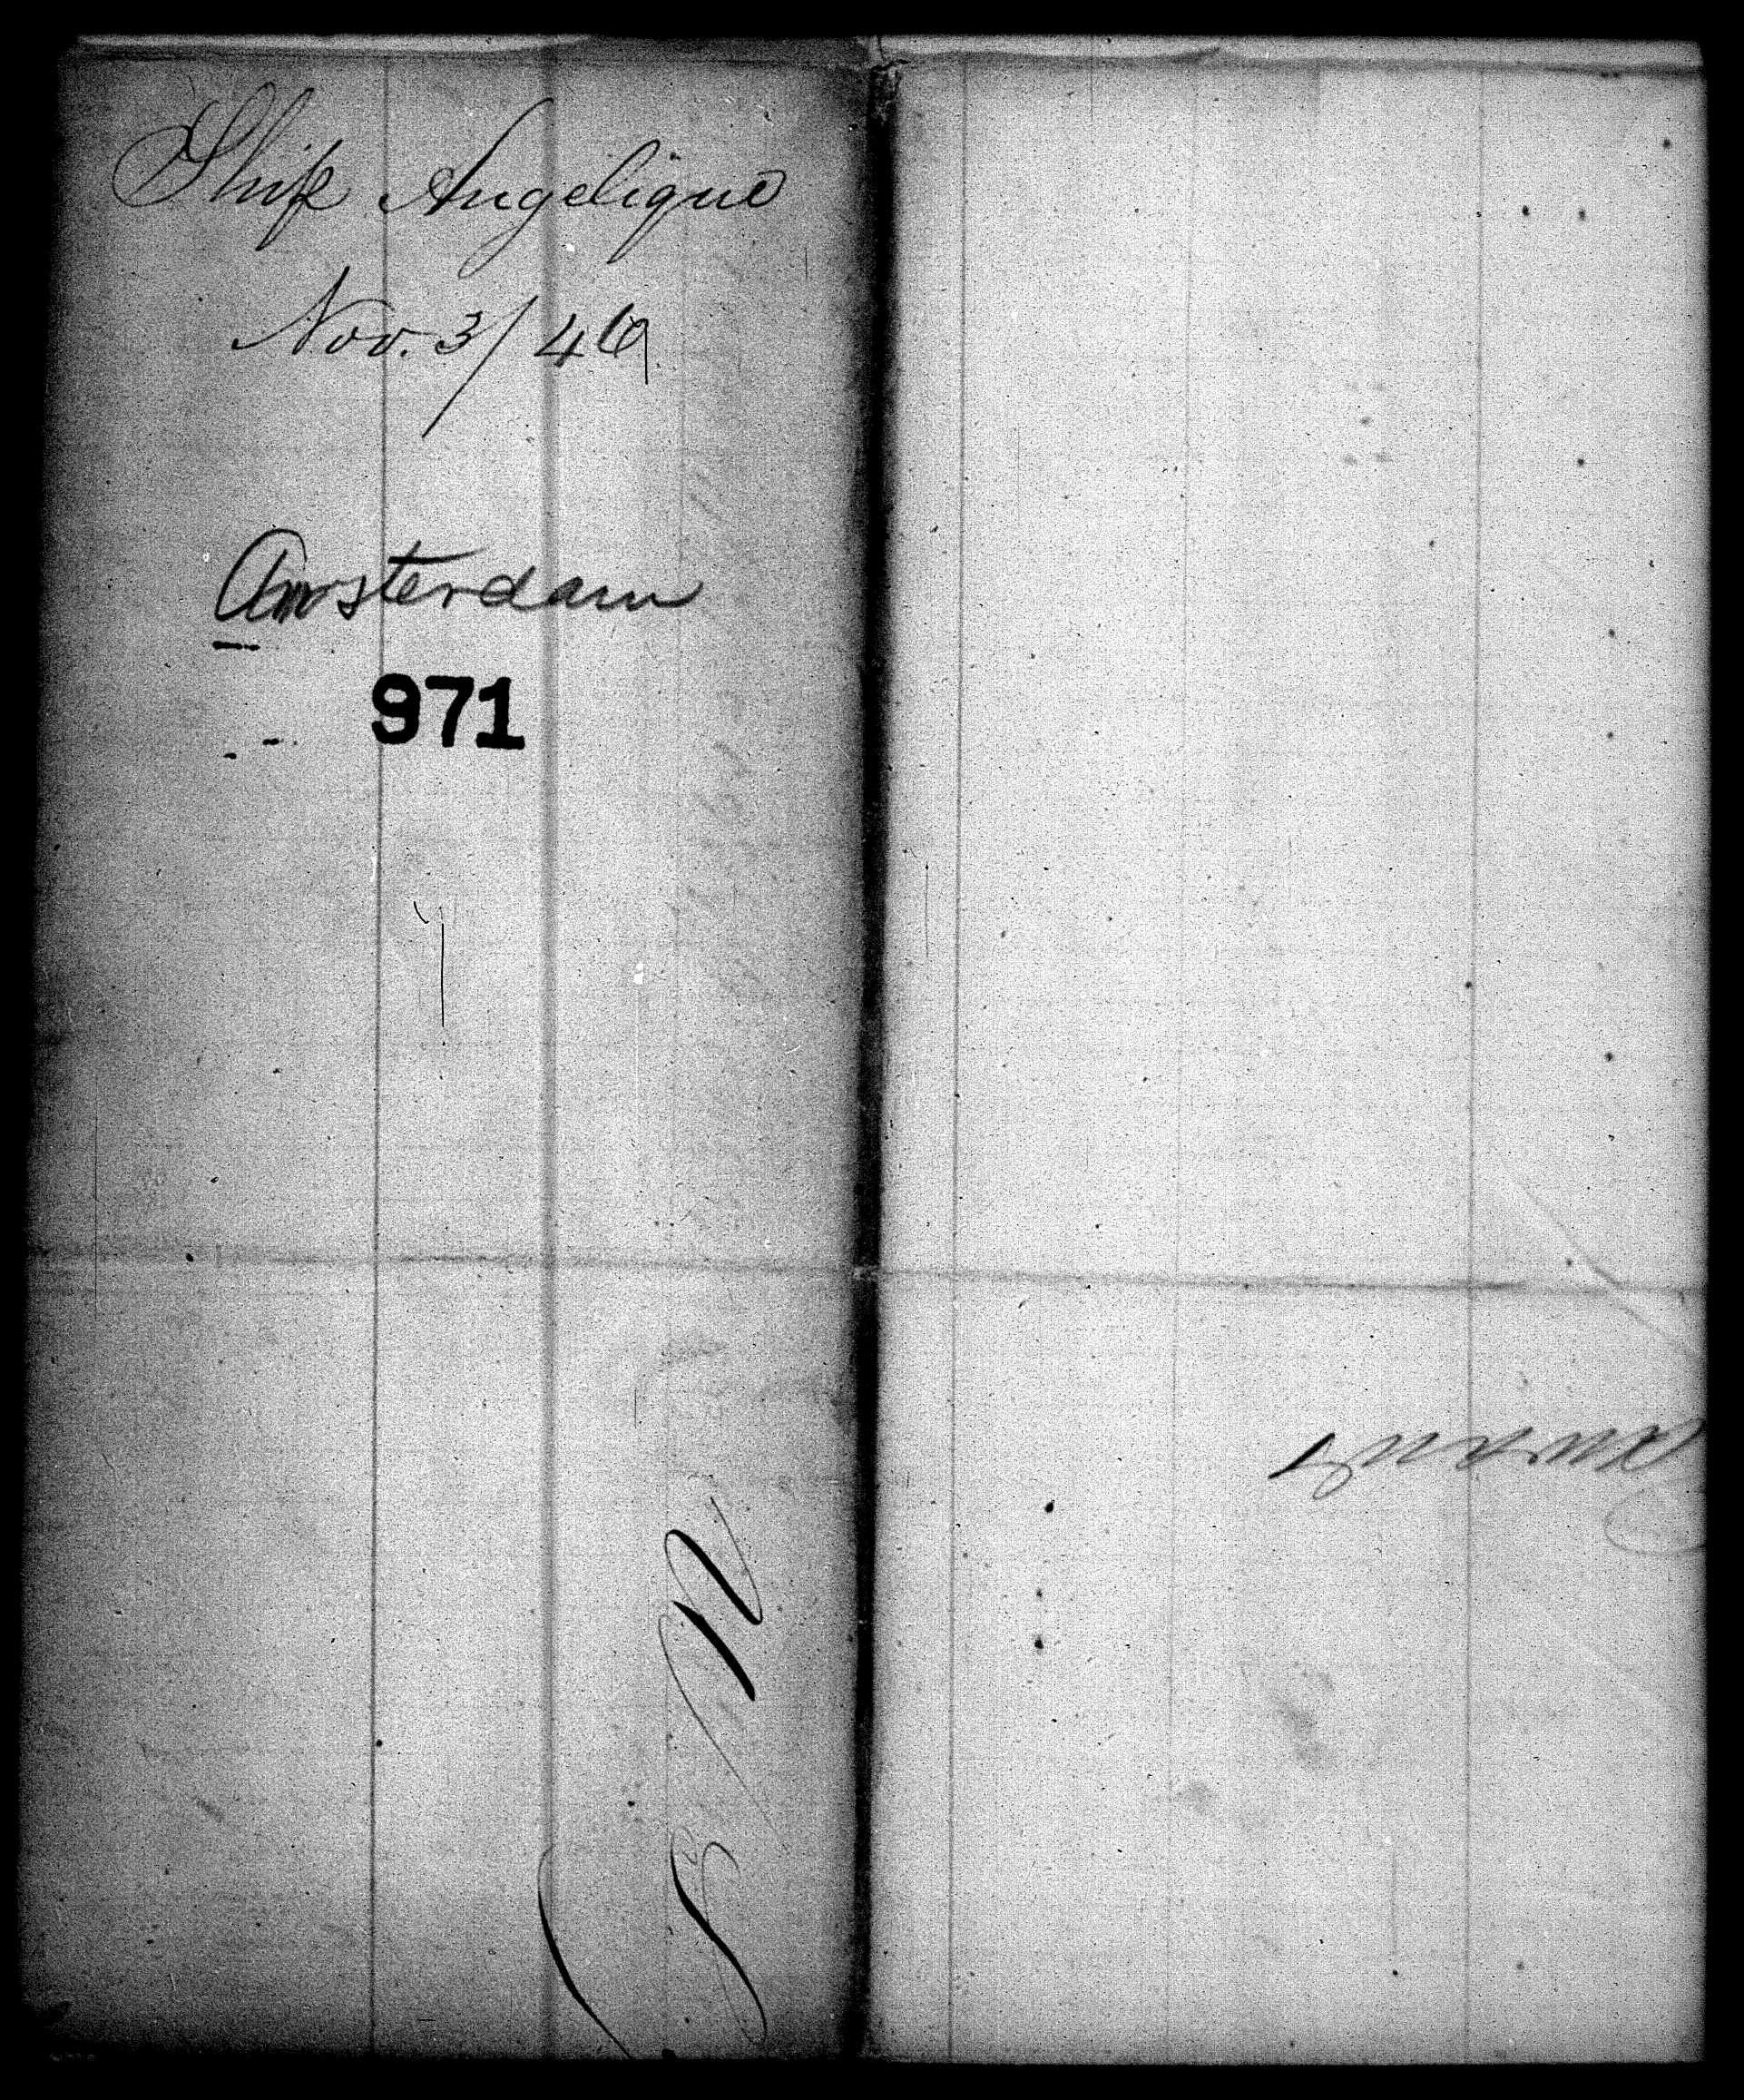 Ship Angelique
Nov. 3/46
Amsterdam
971